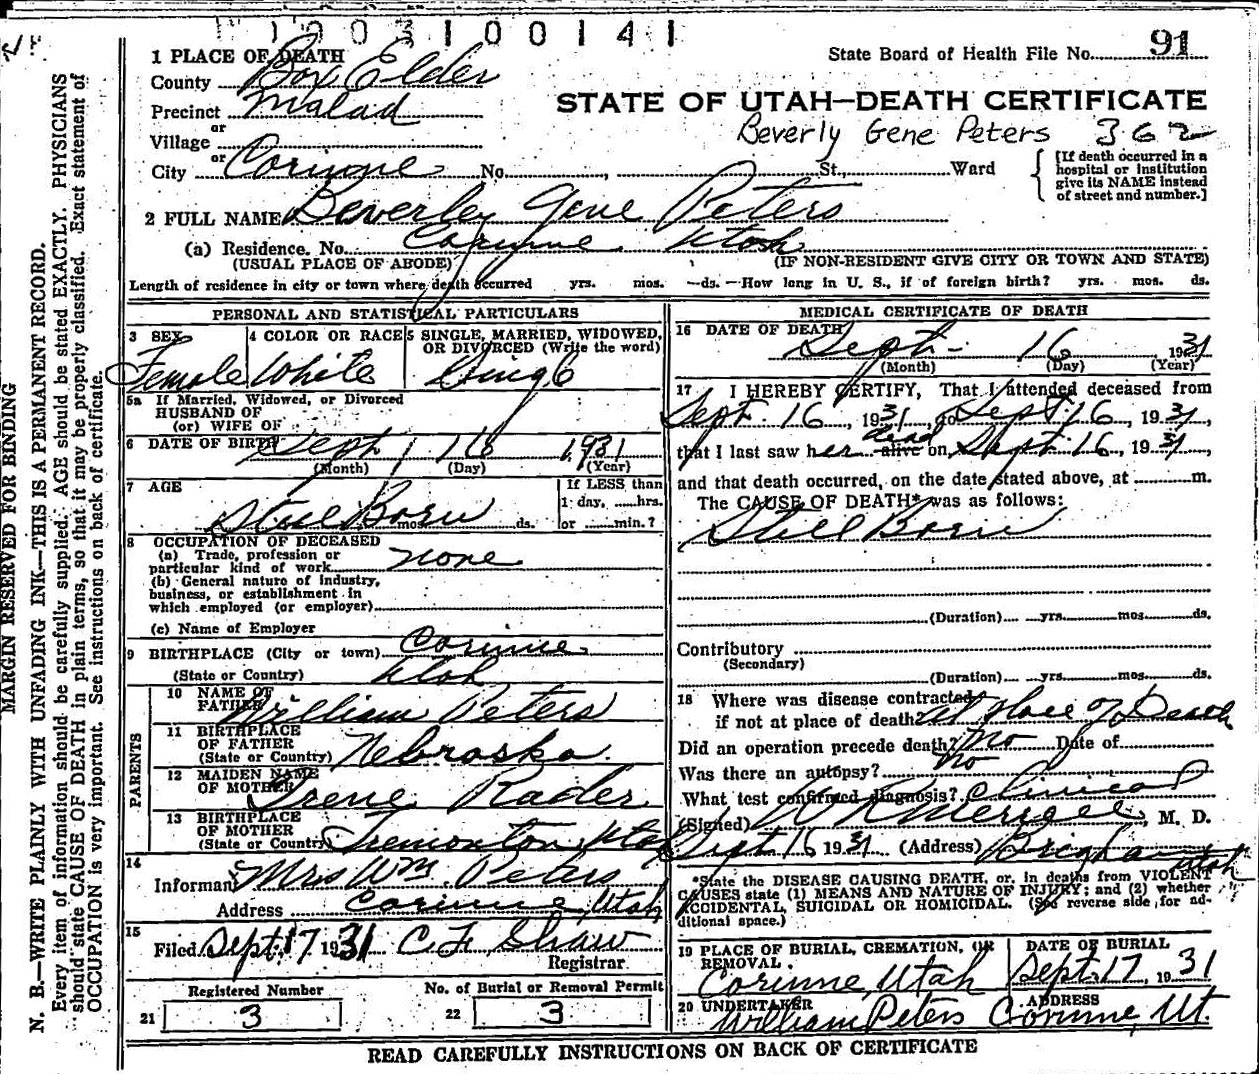 1003100141
State Board of Health File No. 91
1 PLACE OF DEATH
County Box Elder
Precinct Malad
STATE OF UTAH—DEATH CERTIFICATE
or
Village
Beverly Gene Peters 362
or
City Corinne No. , St., Ward
[If death occurred in a hospital or institution give its NAME instead of street and number.]
2 FULL NAME Beverley Gene Peters
(a) Residence. No. Corinne Utah
(USUAL PLACE OF ABODE) (IF NON-RESIDENT GIVE CITY OR TOWN AND STATE)
Length of residence in city or town where death occurred yrs. mos. ds. How long in U. S., if of foreign birth? yrs. mos. ds.
PERSONAL AND STATISTICAL PARTICULARS
3 SEX 4 COLOR OR RACE 5 SINGLE, MARRIED, WIDOWED, OR DIVORCED (Write the word)
Female White Single
5a If Married, Widowed, or Divorced
HUSBAND OF
(or) WIFE OF
6 DATE OF BIRTH Sept 16 1931
(Month) (Day) (Year)
7 AGE If LESS than
1 day, hrs.
Still Born mos. ds. or min.?
8 OCCUPATION OF DECEASED
(a) Trade, profession or
particular kind of work none
(b) General nature of industry,
business, or establishment in
which employed (or employer)
(c) Name of Employer
9 BIRTHPLACE (City or town) Corinne
(State or Country) Utah
PARENTS
10 NAME OF FATHER William Peters
11 BIRTHPLACE OF FATHER
(State or Country) Nebraska
12 MAIDEN NAME OF MOTHER Irene Rader
13 BIRTHPLACE OF MOTHER
(State or Country) Tremonton Utah
14
Informant Mrs Wm. Peters
Address Corinne, Utah
15
Filed Sept. 17 1931 C F Shaw
Registrar
Registered Number No. of Burial or Removal Permit
21 3 22 3
MEDICAL CERTIFICATE OF DEATH
16 DATE OF DEATH Sept- 16 1931
(Month) (Day) (Year)
17 I HEREBY CERTIFY, That I attended deceased from
Sept. 16, 1931, to Sept. 16, 1931,
dead
that I last saw her alive on Sept. 16, 1931,
and that death occurred, on the date stated above, at m.
The CAUSE OF DEATH* was as follows:
Still Born
(Duration) yrs. mos. ds.
Contributory
(Secondary)
(Duration) yrs. mos. ds.
18 Where was disease contracted
if not at place of death? at place of Death
Did an operation precede death? No Date of
Was there an autopsy? no
What test confirmed diagnosis? Clinical
(Signed) , M. D.
Sept 16 1931 (Address) Brigham Utah
*State the DISEASE CAUSING DEATH, or, in deaths from VIOLENT
CAUSES state (1) MEANS AND NATURE OF INJURY; and (2) whether
ACCIDENTAL, SUICIDAL OR HOMICIDAL. (See reverse side for ad-
ditional space.)
19 PLACE OF BURIAL, CREMATION, OR REMOVAL DATE OF BURIAL
Corinne, Utah Sept. 17, 1931
20 UNDERTAKER ADDRESS
William Peters Corinne, Ut.
READ CAREFULLY INSTRUCTIONS ON BACK OF CERTIFICATE
MARGIN RESERVED FOR BINDING
N. B.—WRITE PLAINLY WITH UNFADING INK—THIS IS A PERMANENT RECORD.
Every item of information should be carefully supplied. AGE should be stated EXACTLY. PHYSICIANS
should state CAUSE OF DEATH in plain terms, so that it may be properly classified. Exact statement of
OCCUPATION is very important. See instructions on back of certificate.